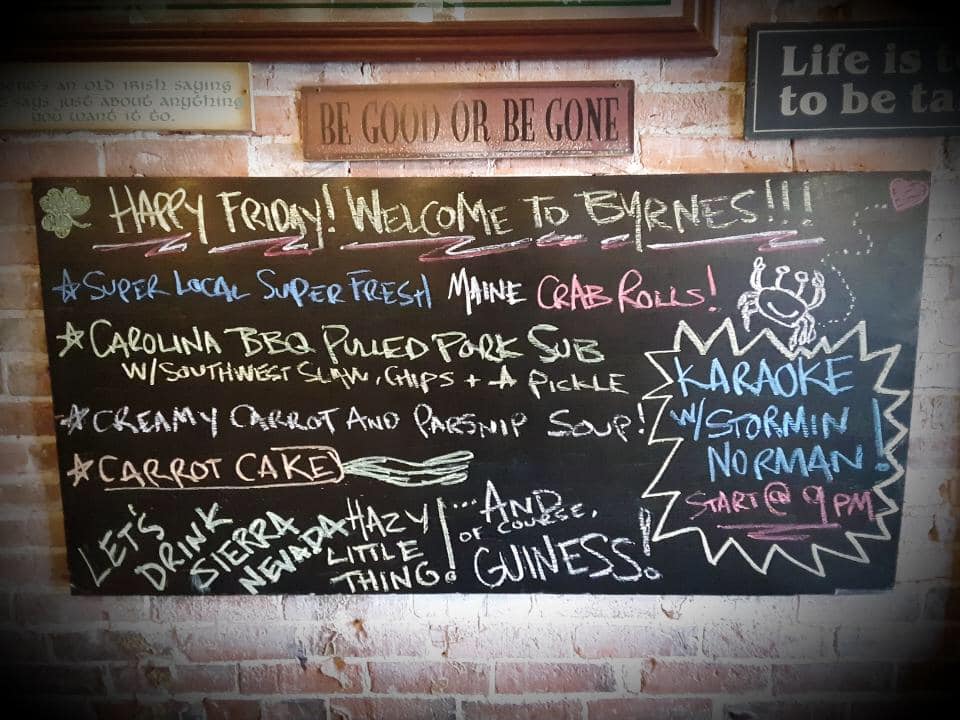 AN OLD IRISH SAYING
SAYS JUST ABOUT ANYTHING
YOU WANT IT TO.
BE GOOD OR BE GONE
Life is
to be
HAPPY FRIDAY! WELCOME TO BYRNES!!!
SUPER LOCAL SUPER FRESH MAINE CRAB ROLLS!
CAROLINA BBQ PULLED PORK SUB
W/SOUTHWEST SLAW, CHIPS + A PICKLE
CREAMY CARROT AND PARSNIP SOUP!
CARROT CAKE
KARAOKE
W/STORMIN
NORMAN!
START @ 9 PM
LET'S
DRINK
SIERRA
NEVADA
HAZY
LITTLE
THING!
...AND
OF COURSE,
GUINESS!